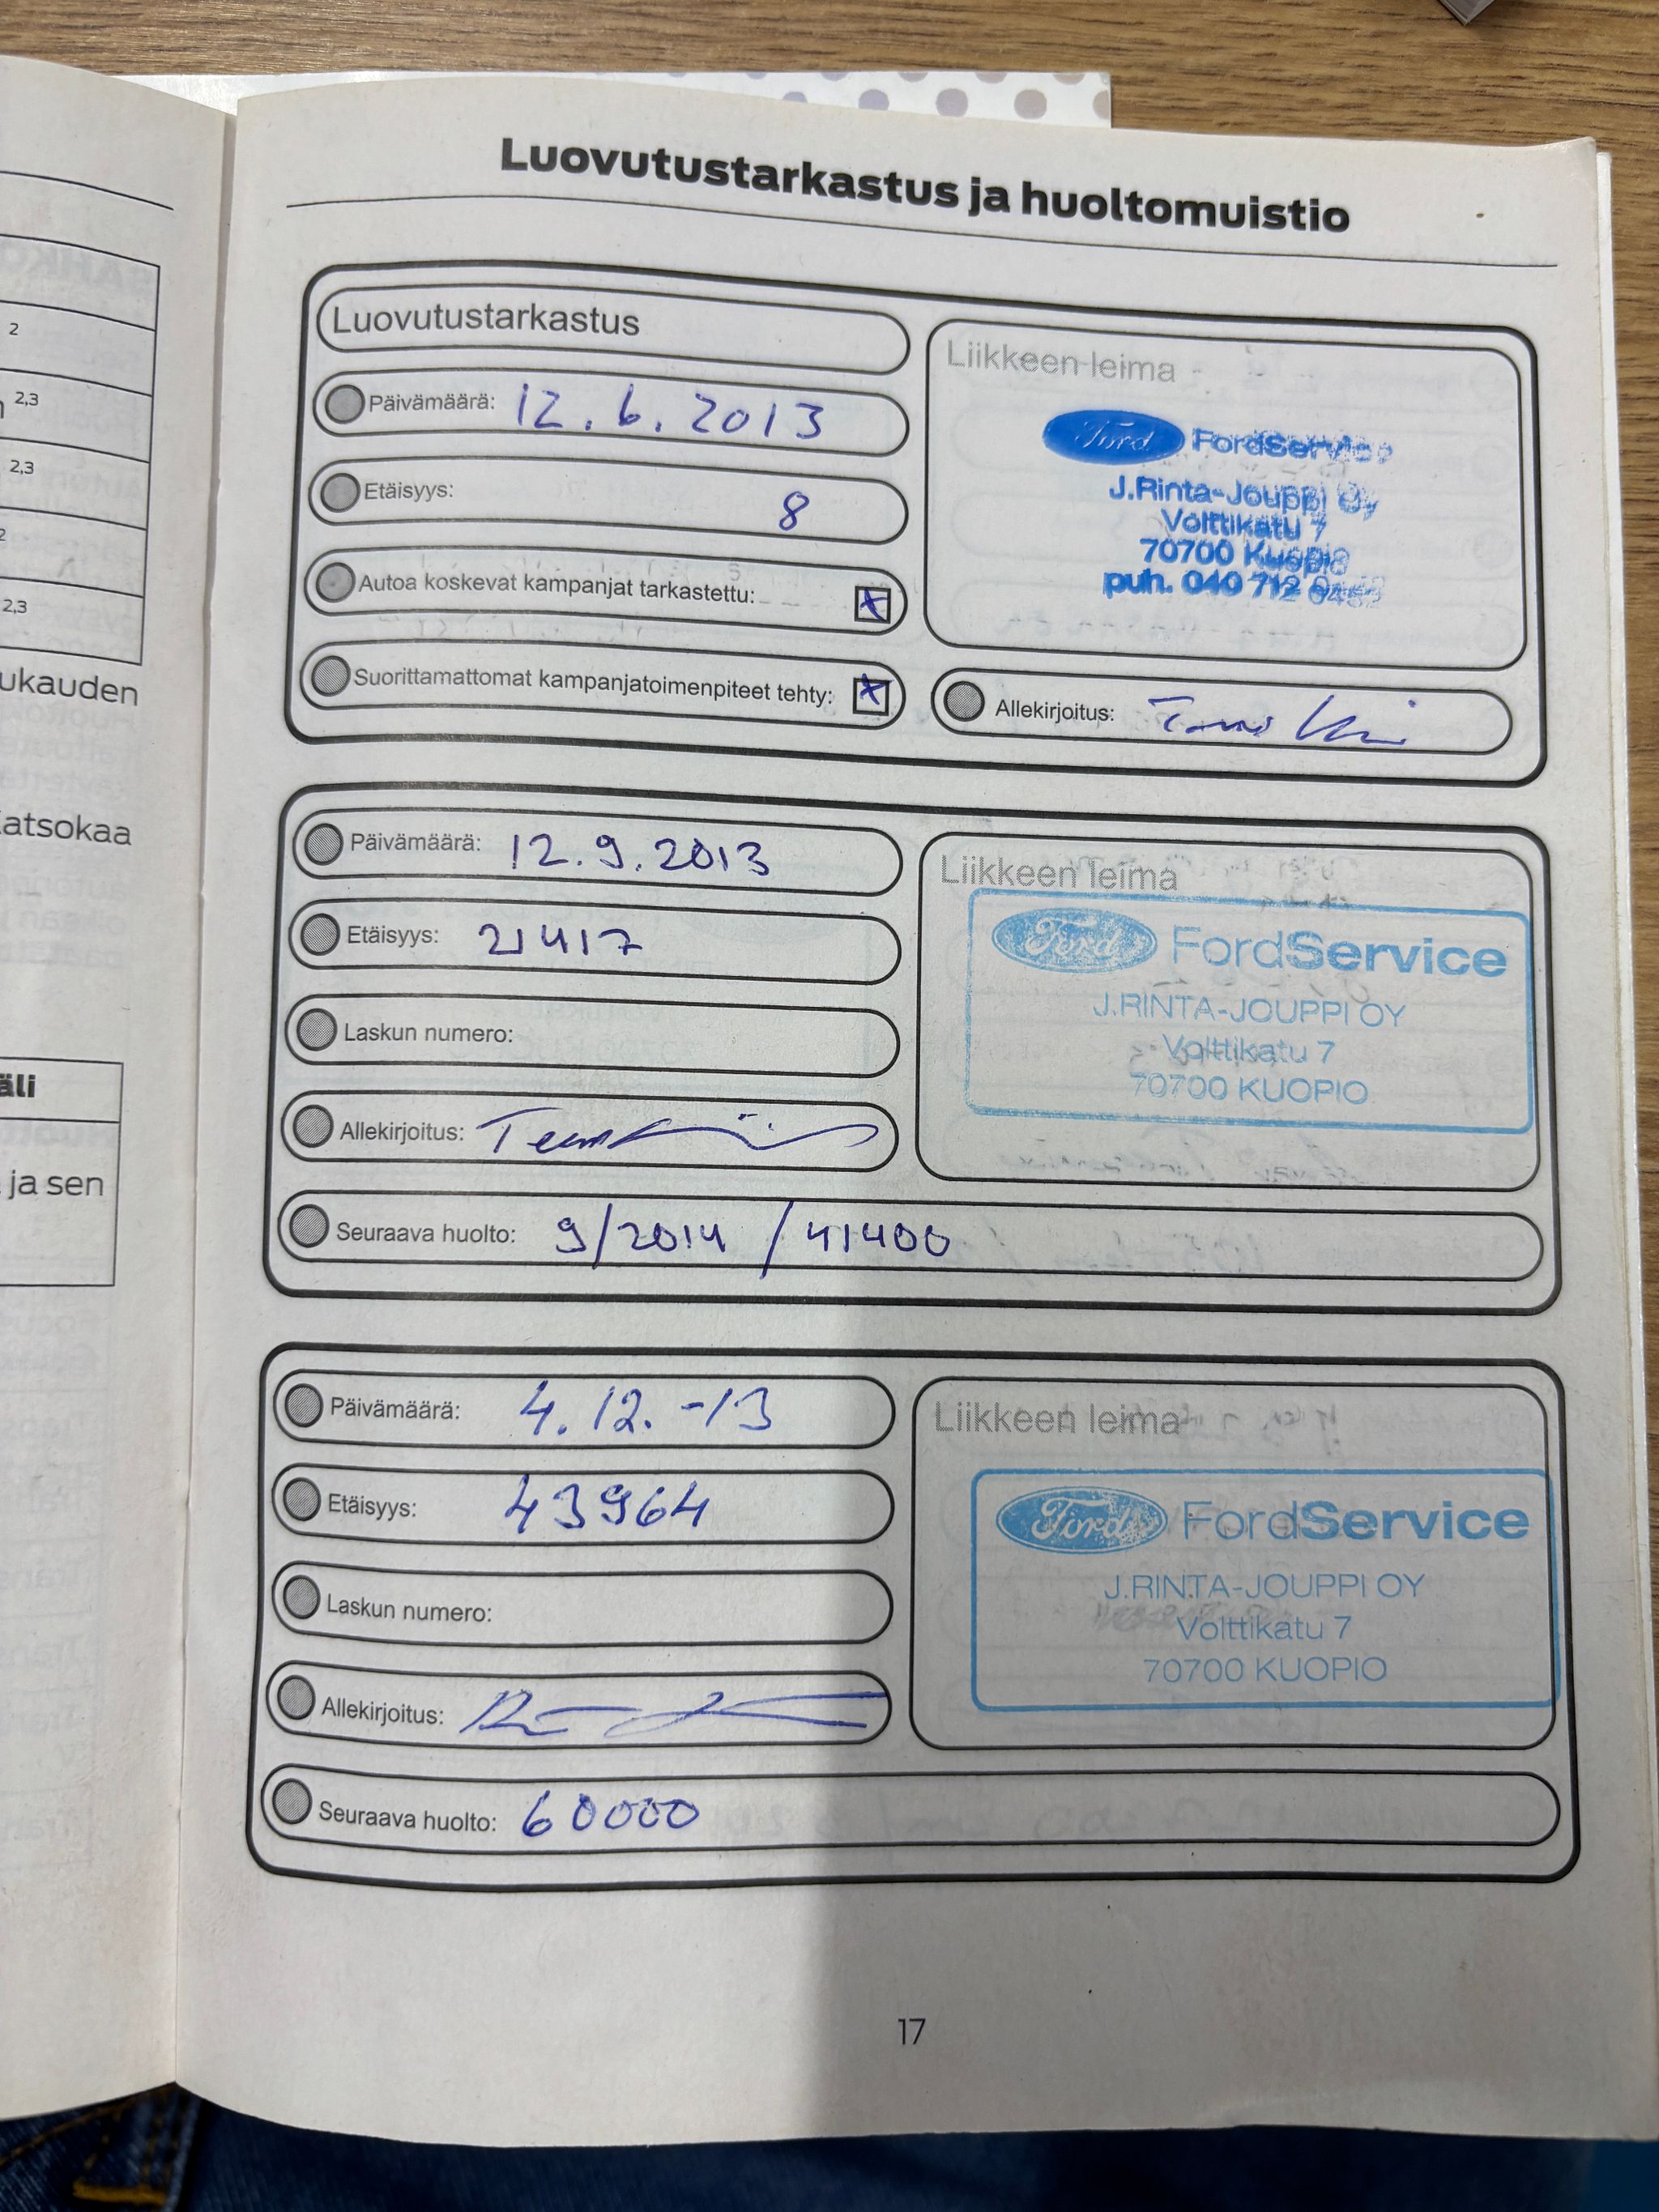 2
2,3
2,3
2,3
ukauden
atsokaa
äli
ja sen
Luovutustarkastus ja huoltomuistio
Luovutustarkastus
Päivämäärä: 12.6.2013
Etäisyys: 8
Autoa koskevat kampanjat tarkastettu: x
Suorittamattomat kampanjatoimenpiteet tehty: x
Liikkeen leima
Ford FordService
J.Rinta-Jouppi Oy
Volttikatu 7
70700 Kuopio
puh. 040 712
Allekirjoitus:
Päivämäärä: 12.9.2013
Etäisyys: 21417
Laskun numero:
Allekirjoitus:
Liikkeen leima
Ford FordService
J.RINTA-JOUPPI OY
Volttikatu 7
70700 KUOPIO
Seuraava huolto: 9/2014 / 41400
Päivämäärä: 4.12.-13
Etäisyys: 43964
Laskun numero:
Allekirjoitus:
Liikkeen leima
Ford FordService
J.RINTA-JOUPPI OY
Volttikatu 7
70700 KUOPIO
Seuraava huolto: 60000
17